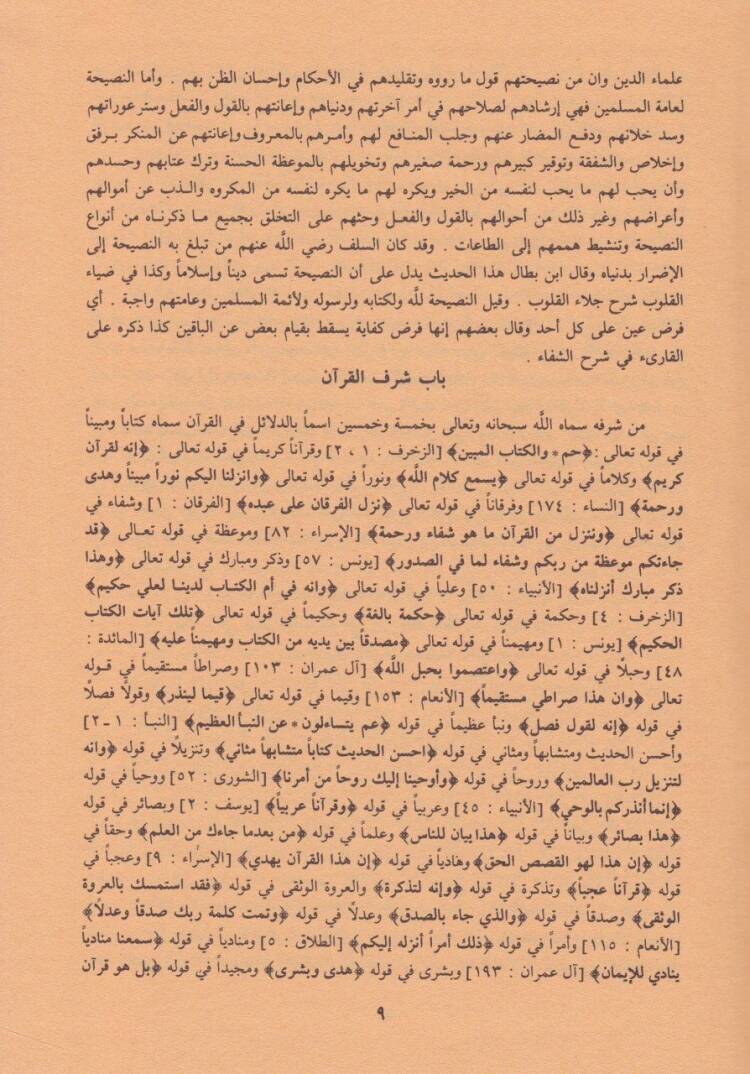 علماء الدين وان من نصيحتهم قول ما رووه وتقليدهم في الأحكام وإحسان الظن بهم . وأما النصيحة
لعامة المسلمين فهي إرشادهم لصلاحهم في أمر آخرتهم ودنياهم وإعانتهم بالقول والفعل وستر عوراتهم
وسد خلاتهم ودفع المضار عنهم وجلب المنافع لهم وأمرهم بالمعروف وإعانتهم عن المنكر برفق
وإخلاص والشفقة وتوقير كبيرهم ورحمة صغيرهم وتخويلهم بالموعظة الحسنة وترك عتابهم وحسدهم
وأن يحب لهم ما يحب لنفسه من الخير ويكره لهم ما يكره لنفسه من المكروه والذب عن أموالهم
وأعراضهم وغير ذلك من أحوالهم بالقول والفعل وحثهم على التخلق بجميع ما ذكرناه من أنواع
النصيحة وتنشيط هممهم إلى الطاعات . وقد كان السلف رضي الله عنهم من تبلغ به النصيحة إلى
الإضرار بدنياه وقال ابن بطال هذا الحديث يدل على أن النصيحة تسمى ديناً وإسلاماً وكذا في ضياء
القلوب شرح جلاء القلوب . وقيل النصيحة لله ولكتابه ولرسوله ولأئمة المسلمين وعامتهم واجبة . أي
فرض عين على كل أحد وقال بعضهم إنها فرض كفاية يسقط بقيام بعض عن الباقين كذا ذكره على
القارىء في شرح الشفاء .
باب شرف القرآن
من شرفه سماه الله سبحانه وتعالى بخمسة وخمسين اسماً بالدلائل في القرآن سماه كتاباً ومبيناً
في قوله تعالى : ﴿حم * والكتاب المبين﴾ [الزخرف : ١ ، ٢] وقرآناً كريماً في قوله تعالى : ﴿إنه لقرآن
كريم﴾ وكلاماً في قوله تعالى ﴿يسمع كلام الله﴾ ونوراً في قوله تعالى ﴿وانزلنا اليكم نوراً مبيناً وهدى
ورحمة﴾ [النساء : ١٧٤] وفرقاناً في قوله تعالى ﴿نزل الفرقان على عبده﴾ [الفرقان : ١] وشفاء في
قوله تعالى ﴿وننزل من القرآن ما هو شفاء ورحمة﴾ [الإسراء : ٨٢] وموعظة في قوله تعالى ﴿قد
جاءتكم موعظة من ربكم وشفاء لما في الصدور﴾ [يونس : ٥٧] وذكر ومبارك في قوله تعالى ﴿وهذا
ذكر مبارك أنزلناه﴾ [الأنبياء : ٥٠] وعلياً في قوله تعالى ﴿وانه في أم الكتاب لدينا لعلي حكيم﴾
[الزخرف : ٤] وحكمة في قوله تعالى ﴿حكمة بالغة﴾ وحكيماً في قوله تعالى ﴿تلك آيات الكتاب
الحكيم﴾ [يونس : ١] ومهيمناً في قوله تعالى ﴿مصدقاً بين يديه من الكتاب ومهيمناً عليه﴾ [المائدة :
٤٨] وحبلًا في قوله تعالى ﴿واعتصموا بحبل الله﴾ [آل عمران : ١٠٣] وصراطاً مستقيماً في قوله
تعالى ﴿وان هذا صراطي مستقيماً﴾ [الأنعام : ١٥٣] وقيما في قوله تعالى ﴿قيما لينذر﴾ وقولا فصلًا
في قوله ﴿إنه لقول فصل﴾ ونبأ عظيماً في قوله ﴿عم يتساءلون * عن النبأ العظيم﴾ [النبأ : ١ - ٢]
وأحسن الحديث ومتشابهاً ومثاني في قوله ﴿احسن الحديث كتاباً متشابهاً مثاني﴾ وتنزيلًا في قوله ﴿وانه
لتنزيل رب العالمين﴾ وروحاً في قوله ﴿وأوحينا إليك روحاً من أمرنا﴾ [الشورى : ٥٢] ووحياً في قوله
﴿إنما أنذركم بالوحي﴾ [الأنبياء : ٤٥] وعربياً في قوله ﴿وقرآناً عربياً﴾ [يوسف : ٢] وبصائر في قوله
﴿هذا بصائر﴾ وبياناً في قوله ﴿هذا بيان للناس﴾ وعلماً في قوله ﴿من بعدما جاءك من العلم﴾ وحقاً في
قوله ﴿إن هذا لهو القصص الحق﴾ وهادياً في قوله ﴿إن هذا القرآن يهدي﴾ [الإسراء : ٩] وعجباً في
قوله ﴿قرآناً عجباً﴾ وتذكرة في قوله ﴿وإنه لتذكرة﴾ والعروة الوثقى في قوله ﴿فقد استمسك بالعروة
الوثقى﴾ وصدقاً في قوله ﴿والذي جاء بالصدق﴾ وعدلًا في قوله ﴿وتمت كلمة ربك صدقاً وعدلًا﴾
[الأنعام : ١١٥] وأمراً في قوله ﴿ذلك أمراً أنزله إليكم﴾ [الطلاق : ٥] ومنادياً في قوله ﴿سمعنا منادياً
ينادي للإيمان﴾ [آل عمران : ١٩٣] وبشرى في قوله ﴿هدى وبشرى﴾ ومجيداً في قوله ﴿بل هو قرآن
٩